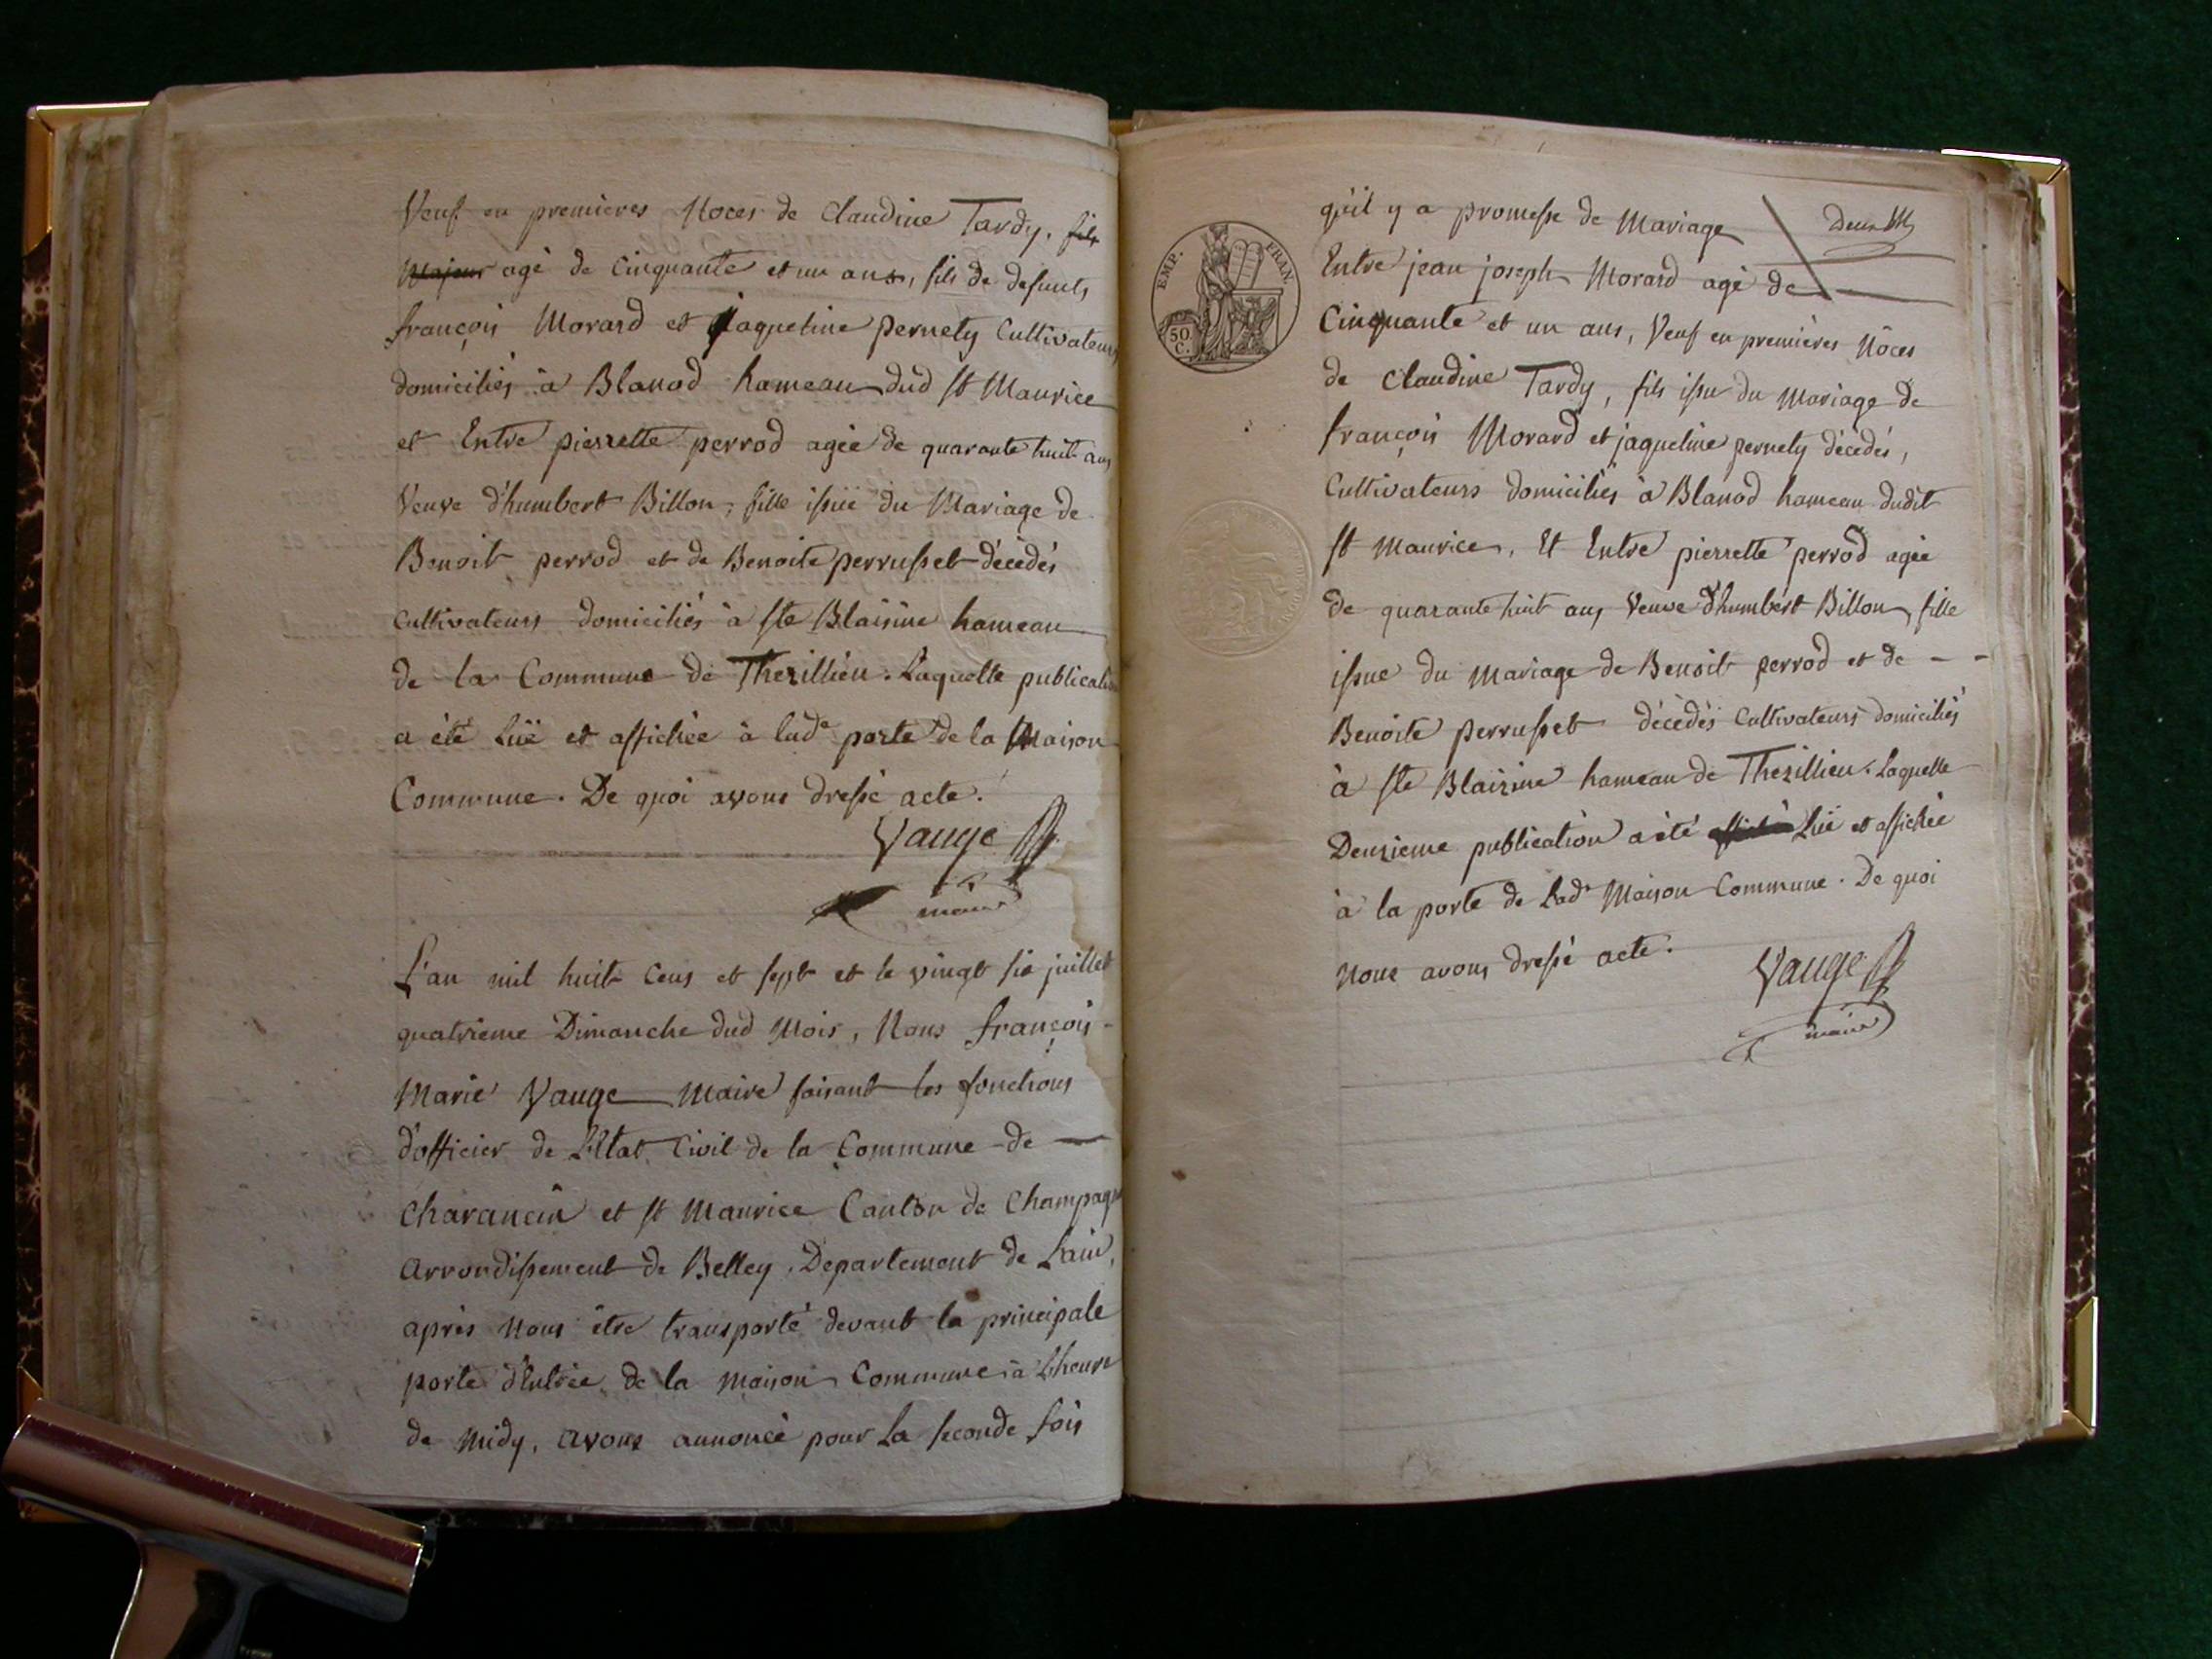 Veuf en premieres Noces de Claudine Tardy, fils
Majeur agé de Cinquante et un ans, fils de defunts
françois Morard et jaqueline pernety Cultivateurs
domiciliés à Blanod hameau dud St Maurice
et Entre pierrette perrod agée de quarante huit ans
Veuve d'humbert Billon, fille issüe du Mariage de
Benoit perrod et de Benoite perrusset décédés
Cultivateurs domiciliés à Ste Blaisine hameau
de la Commune de Thezillieu. Laquelle publication
a été Lüe et affichée à lade porte de la Maison
Commune. De quoi avons dressé acte.
Vauge
maire
L'an mil huit Cens et sept et le vingt six juillet
quatrieme Dimanche dud Mois, Nous françois
Marie Vauge Maire faisant les fonctions
d'officier de L'Etat Civil de la Commune de
Charancin et St Maurice Canton de Champagne
Arrondissement de Belley, Departement de L'ain,
après Nous être transporté devant la principale
porte d'Entrée de la Maison Commune à L'heure
de Midy, avons annoncé pour La seconde fois
EMP. FRAN.
50 C.
qu'il y a promesse de Mariage
Entre jean joseph Morard agé de
Cinquante et un ans, Veuf en premières Nôces
de Claudine Tardy, fils issu du Mariage de
françois Morard et jaqueline pernety décédés,
Cultivateurs domiciliés à Blanod hameau dudit
St Maurice, Et Entre pierrette perrod agée
de quarante huit ans Veuve d'humbert Billon, fille
issue du Mariage de Benoit perrod et de
Benoite perrusset décédés Cultivateurs domiciliés
à Ste Blaisine hameau de Thezillieu. Laquelle
Deuxieme publication a été Lüe et affichée
à la porte de Lade Maison Commune. De quoi
Nous avons dressé acte.
Vauge
maire